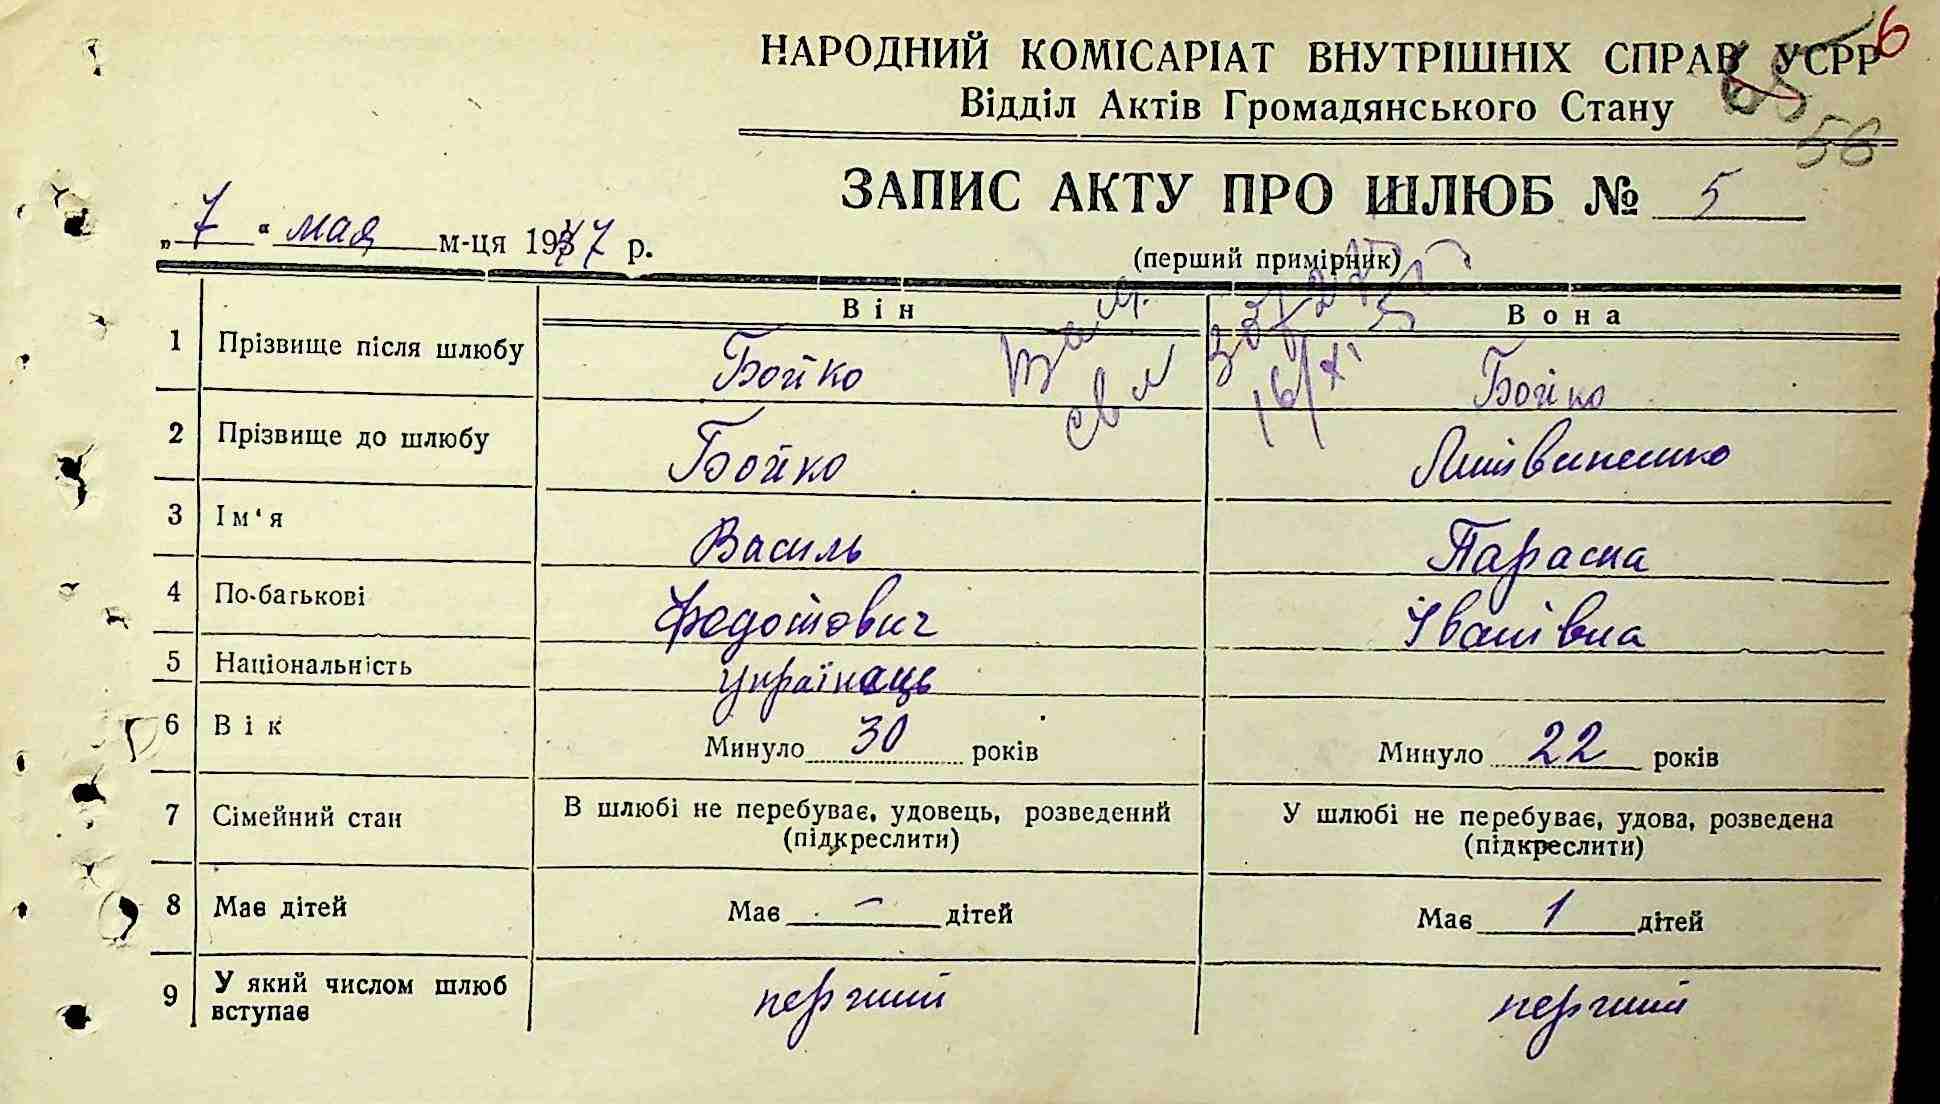 6
НАРОДНИЙ КОМІСАРІАТ ВНУТРІШНІХ СПРАВ УСРР
Відділ Актів Громадянського Стану
56
ЗАПИС АКТУ ПРО ШЛЮБ № 5
„ 7 “ мая м-ця 1947 р.
(перший примірник)
Він Вона
1 Прізвище після шлюбу Бойко Бойко
16/XI
2 Прізвище до шлюбу Бойко Литвиненко
3 Ім‘я Василь Параска
4 По-батькові Федотович Іванівна
5 Національність українець
6 Вік Минуло 30 років Минуло 22 років
7 Сімейний стан В шлюбі не перебуває, удовець, розведений (підкреслити) У шлюбі не перебуває, удова, розведена (підкреслити)
8 Має дітей Має - дітей Має 1 дітей
9 У який числом шлюб вступає перший перший